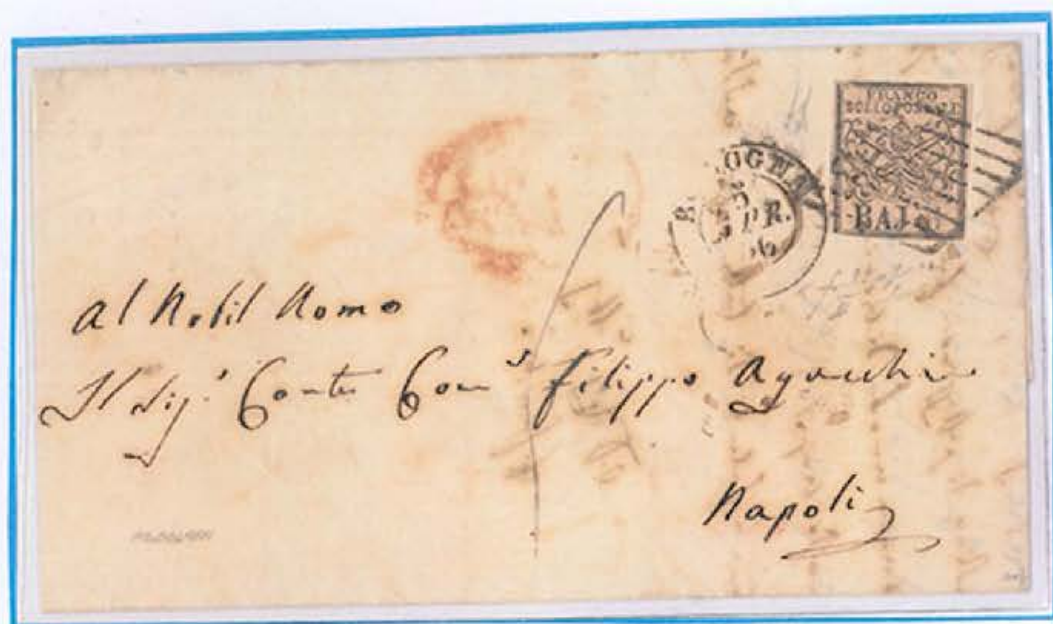 FRANCO
BOLLO POSTALE
BAJ
BOLOGNA
APR.
56
Al Nobil Uomo
Il Sig.r Conte Com.e Filippo Agucchi
Napoli